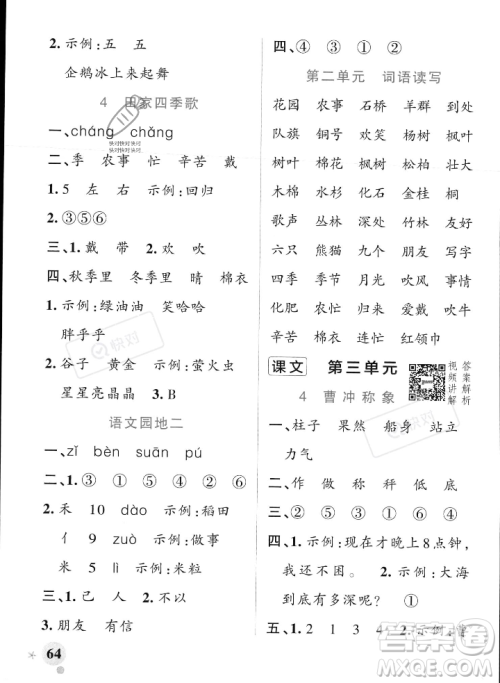 2. 示例:五 五
企鹅冰上来起舞
4 田家四季歌
一、cháng chǎng
二、季 农事 忙 辛苦 戴
三、1. 5 左 右 示例:回归
2. ③⑤⑥
三、1. 戴 带 2. 欢 吹
四、秋季里 冬季里 晴 棉衣
五、1. 示例:绿油油 笑哈哈
胖乎乎
2. 谷子 黄金 示例:萤火虫
星星亮晶晶 3. B
语文园地二
一、zǐ bèn suān pú
二、1. ①③ ① ⑤ ④ ② ⑥
2. 禾 10 dào 示例:稻田
亻 9 zuò 示例:做事
米 5 lì 示例:米粒
三、1. 己 人 2. 不 以
3. 朋友 有信
64
四、④ ③ ① ②
第二单元 词语读写
花园 农事 石桥 羊群 到处
队旗 铜号 欢笑 杨树 枫树
树叶 棉花 枫树 松柏 木瓜
木棉 水杉 化石 金桂 桐树
歌声 丛林 深处 竹林 友好
六只 熊猫 九只 朋友 写字
四季 季节 月光 吹风 事情
化肥 农忙 归来 戴花 吹牛
辛苦 棉衣 连忙 红领巾
课文 第三单元
视频讲解
答案解析
4 曹冲称象
一、柱子 果然 船身 站立
力气
二、作 做 称 秤 低 底
三、② ⑤ ③ ① ⑥ ④
四、1. 示例:现在才晚上8点钟,
我还不困。 2. 示例:大海
到底有多深呢? ①
五、1. 2 1 3 4
快对
MXQE.COM